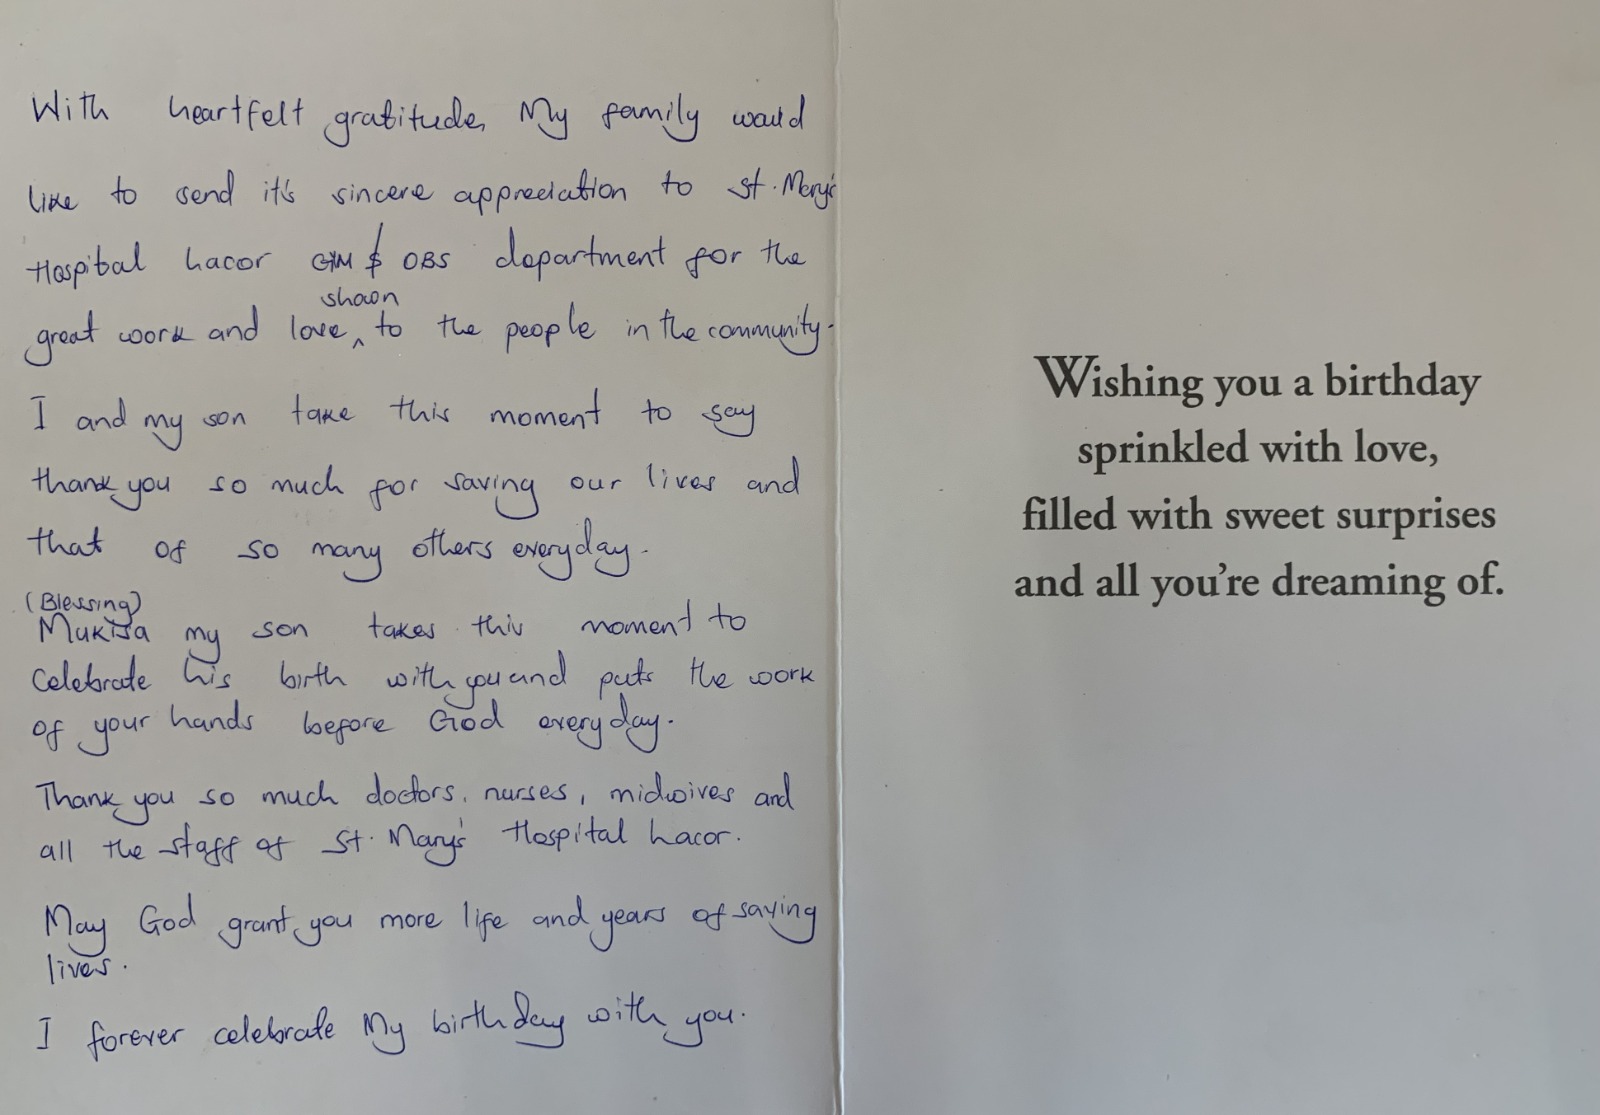 With heartfelt gratitude, My family would
like to send it's sincere appreciation to St. Mary's
Hospital Lacor GYN & OBS department for the
shown
great work and love ^ to the people in the community.
I and my son take this moment to say
thank you so much for saving our lives and
that of so many others everyday.
(Blessing)
Mukisa my son takes this moment to
celebrate his birth with you and puts the work
of your hands before God everyday.
Thank you so much doctors, nurses, midwives and
all the staff of St. Mary's Hospital Lacor.
May God grant you more life and years of saving
lives.
I forever celebrate My birthday with you.
Wishing you a birthday
sprinkled with love,
filled with sweet surprises
and all you're dreaming of.